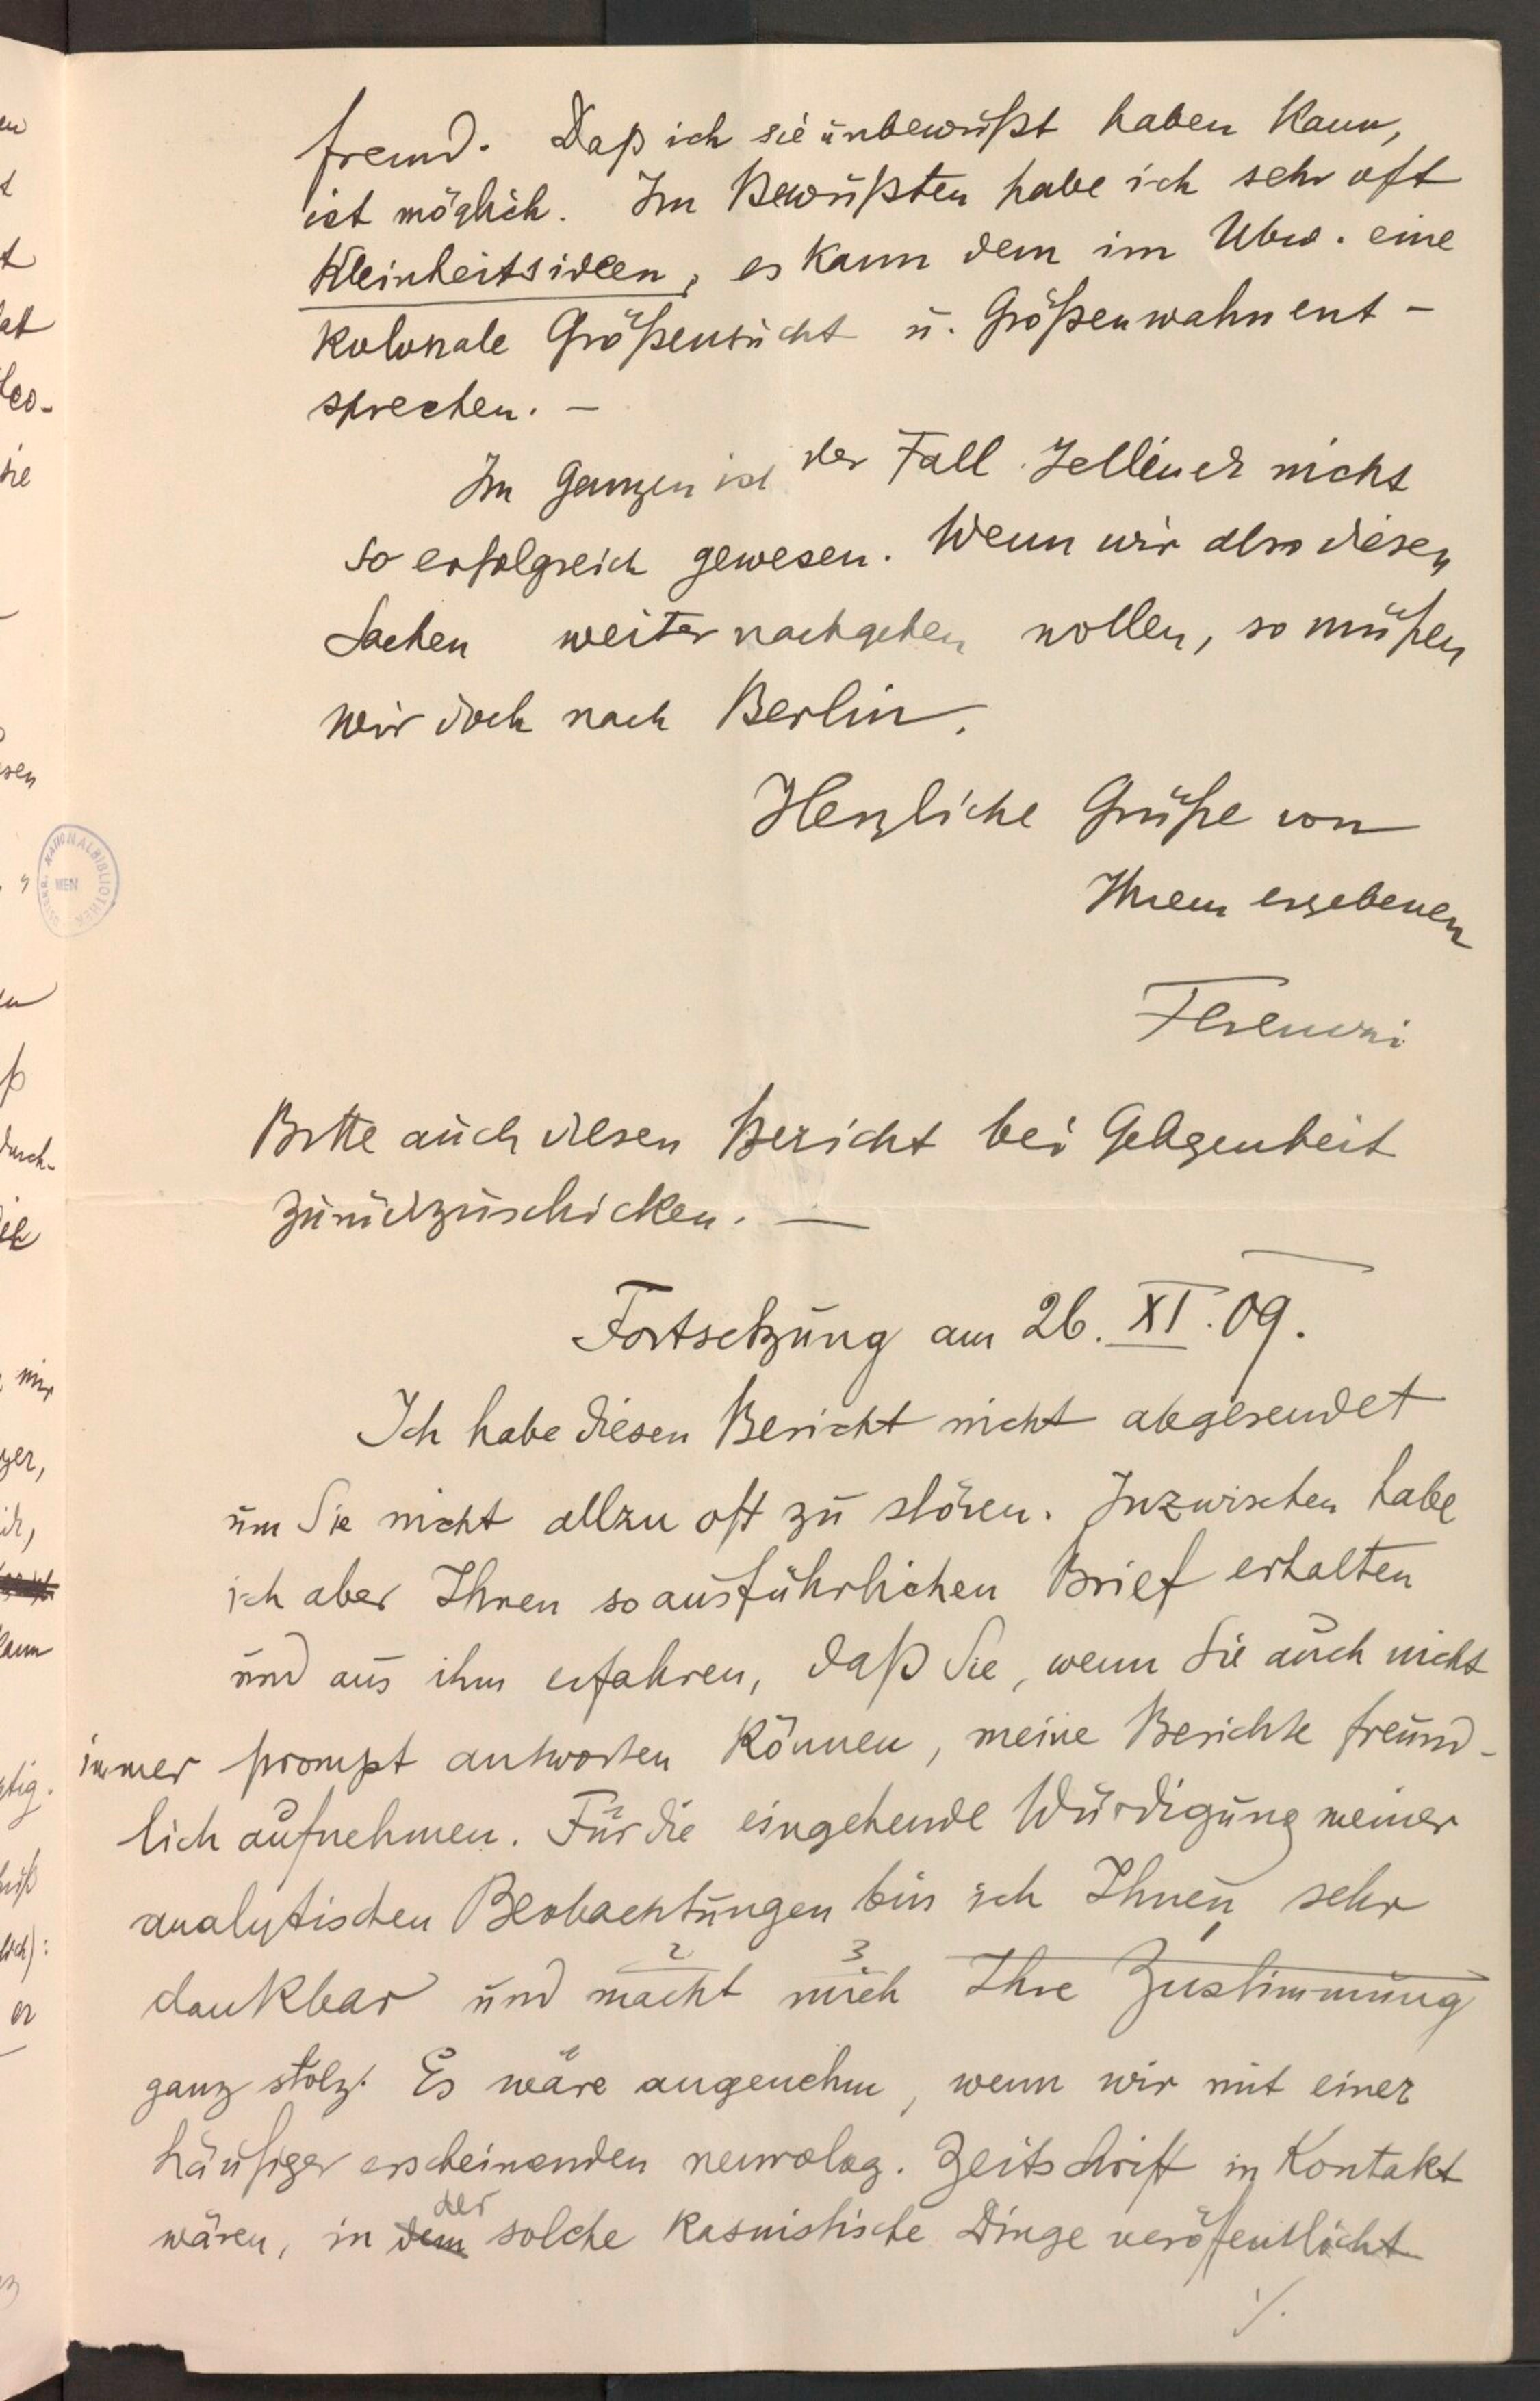 fremd. Daß ich sie unbewußt haben kann,
ist möglich. Im Bewußten habe ich sehr oft
Kleinheitsideen, es kann dem im Ubw. eine
kolossale Größensucht u. Größenwahn ent-
sprechen. –
Im Ganzen ist der Fall Jelinek nicht
so erfolgreich gewesen. Wenn wir also diesen
Sachen weiter nachgehen wollen, so müßen
wir doch nach Berlin.
Herzliche Grüße von
Ihrem ergebenen
Ferenczi
Bitte auch diesen Bericht bei Gelegenheit
zurückzuschicken. —
Fortsetzung am 26. XI. 09.
Ich habe diesen Bericht nicht abgesendet
um Sie nicht allzu oft zu stören. Inzwischen habe
ich aber Ihren so ausführlichen Brief erhalten
und aus ihm erfahren, daß Sie, wenn Sie auch nicht
immer prompt antworten können, meine Berichte freund-
lich aufnehmen. Für die eingehende Würdigung meiner
analytischen Beobachtungen bin ich Ihnen sehr
dankbar und macht mich Ihre Zustimmung
ganz stolz. Es wäre angenehm, wenn wir mit einer
häufiger erscheinenden neurolog. Zeitschrift in Kontakt
wären, in dem der solche kasuistische Dinge veröffentlicht
./.
ÖSTERR. NATIONALBIBLIOTHEK WIEN